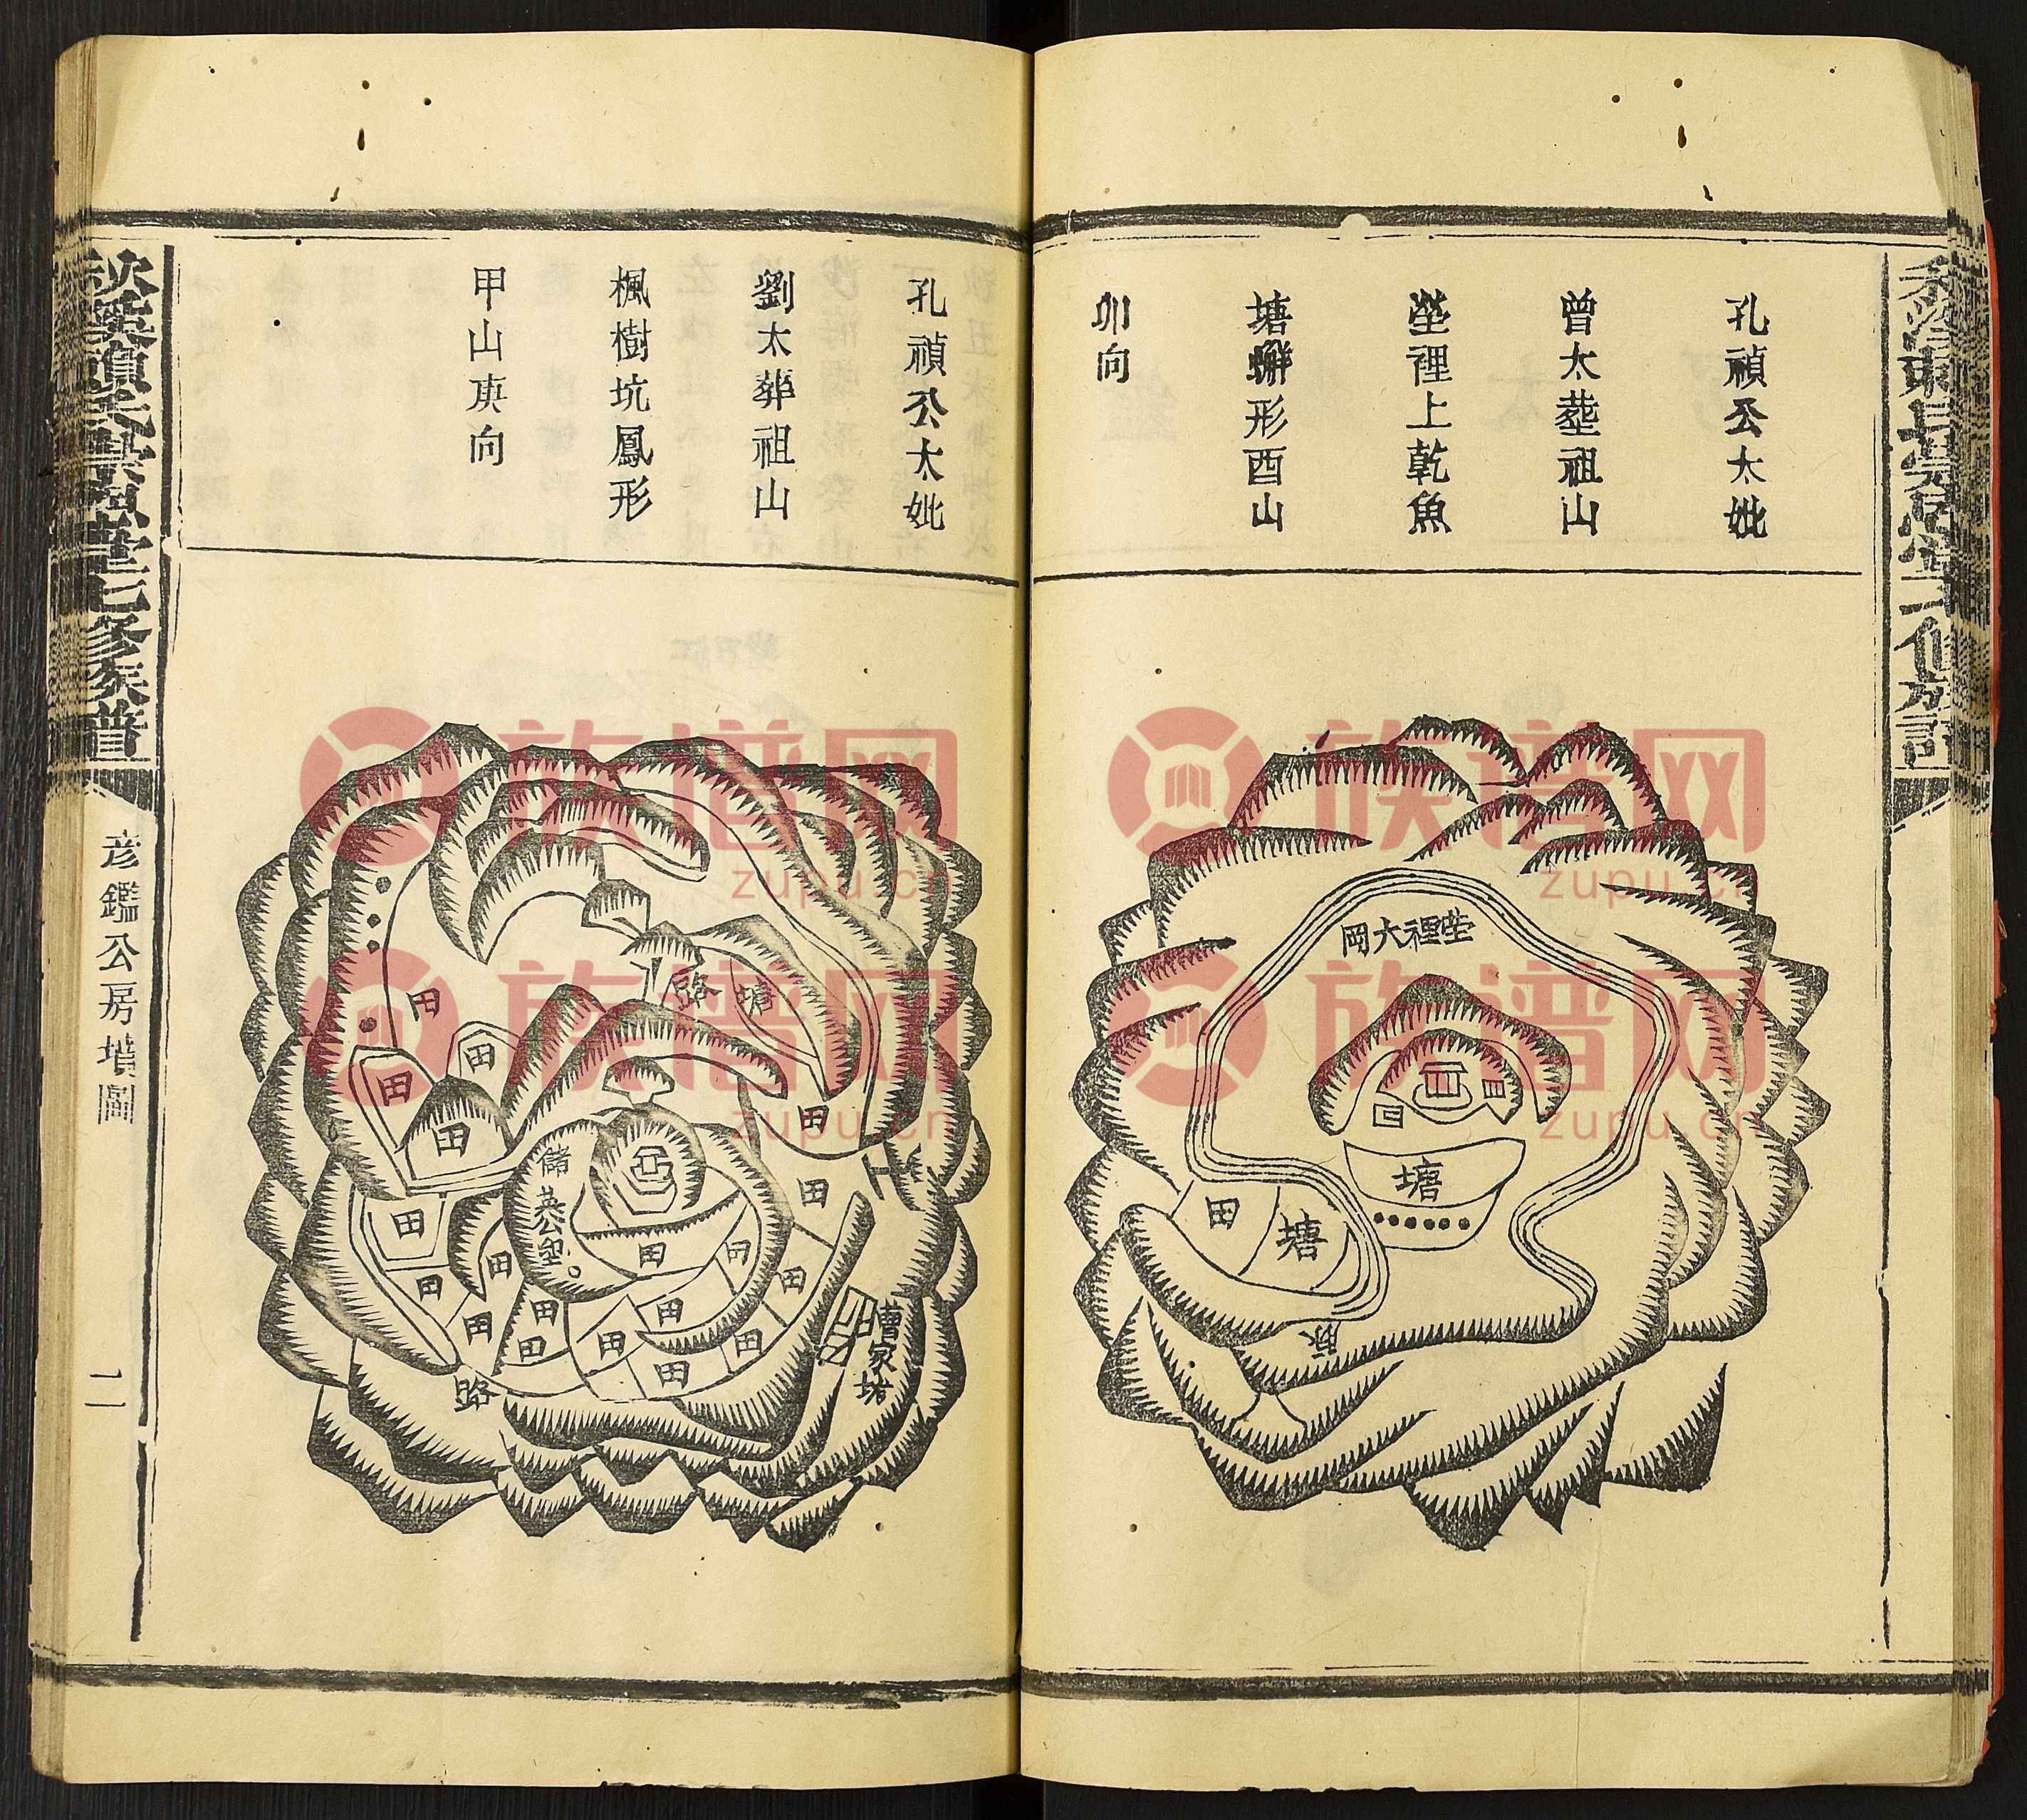 孔禎公太妣
曾太塟祖山
塋裡上乾魚
塘螄形酉山
卯向
塋裡大岡
塘
田
塘
孔禎公太妣
劉太葬祖山
楓樹坑鳳形
甲山庚向
路
塘
田
田
田
田
田
田
儲英公塋
田
田
田
田
田
田
田
田
田
田
田
田
田
路
曹家塘
堂七修族譜
彦鑑公房墳圖
二
族谱网
zupu.cn
族谱网
zupu.cn
族谱网
zupu.cn
族谱网
zupu.cn